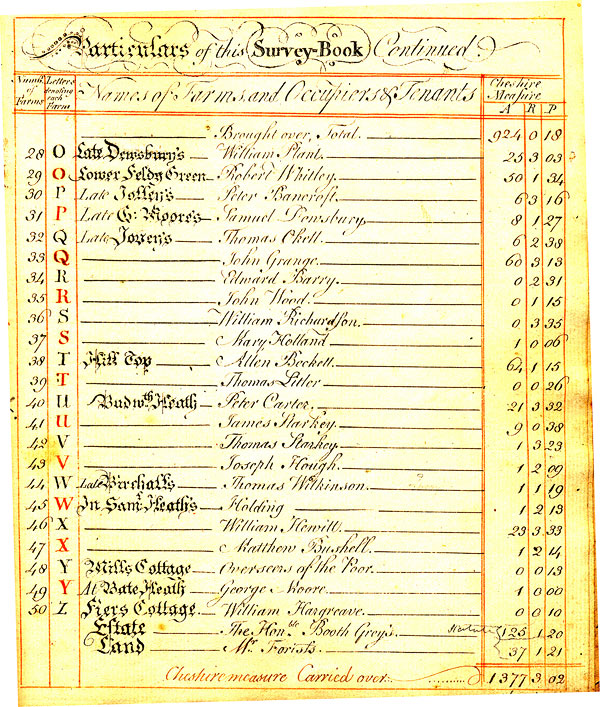 Particulars of this Survey-Book Continued
Numb. of Farms Letters denoting each Farm Names of Farms, and Occupiers & Tenants Cheshire Measure
A R P
Brought over, Total. 924 0 18
28 O Late Dewsbury's William Plant. 25 3 03
29 O Lower Feldy Green Robert Whitley. 50 1 34
30 P Late Jolley's Peter Bancroft. 6 3 16
31 P Late G: Moore's Samuel Dewsbury 8 1 27
32 Q Late Thomas Okell. 6 2 38
33 Q John Grange. 60 3 13
34 R Edward Barry. 0 2 31
35 R John Wood. 0 1 15
36 S William Richardson. 0 3 35
37 S Mary Holland 1 0 06
38 T Hill Top Allen Beckett. 64 1 15
39 T Thomas Litler 0 0 26
40 U Budwth Heath Peter Carter. 21 3 32
41 U James Starkey. 9 0 38
42 V Thomas Starkey. 1 3 23
43 V Joseph Hough. 1 2 09
44 W Late Birchall's Thomas Wilkinson. 1 1 19
45 W In Saml. Heath's Holding 1 2 13
46 X William Hewitt. 23 3 33
47 X Matthew Bushell. 1 2 14
48 Y Mills Cottage Overseers of the Poor. 0 0 13
49 Y At Bate Heath George Moore. 1 0 00
50 Z Fiers Cottage William Hargreave. 0 0 10
Estate The Honble. Booth Grey's Statute 125 1 20
Land Mr. Forists. 37 1 21
Cheshire measure Carried over 1377 3 02